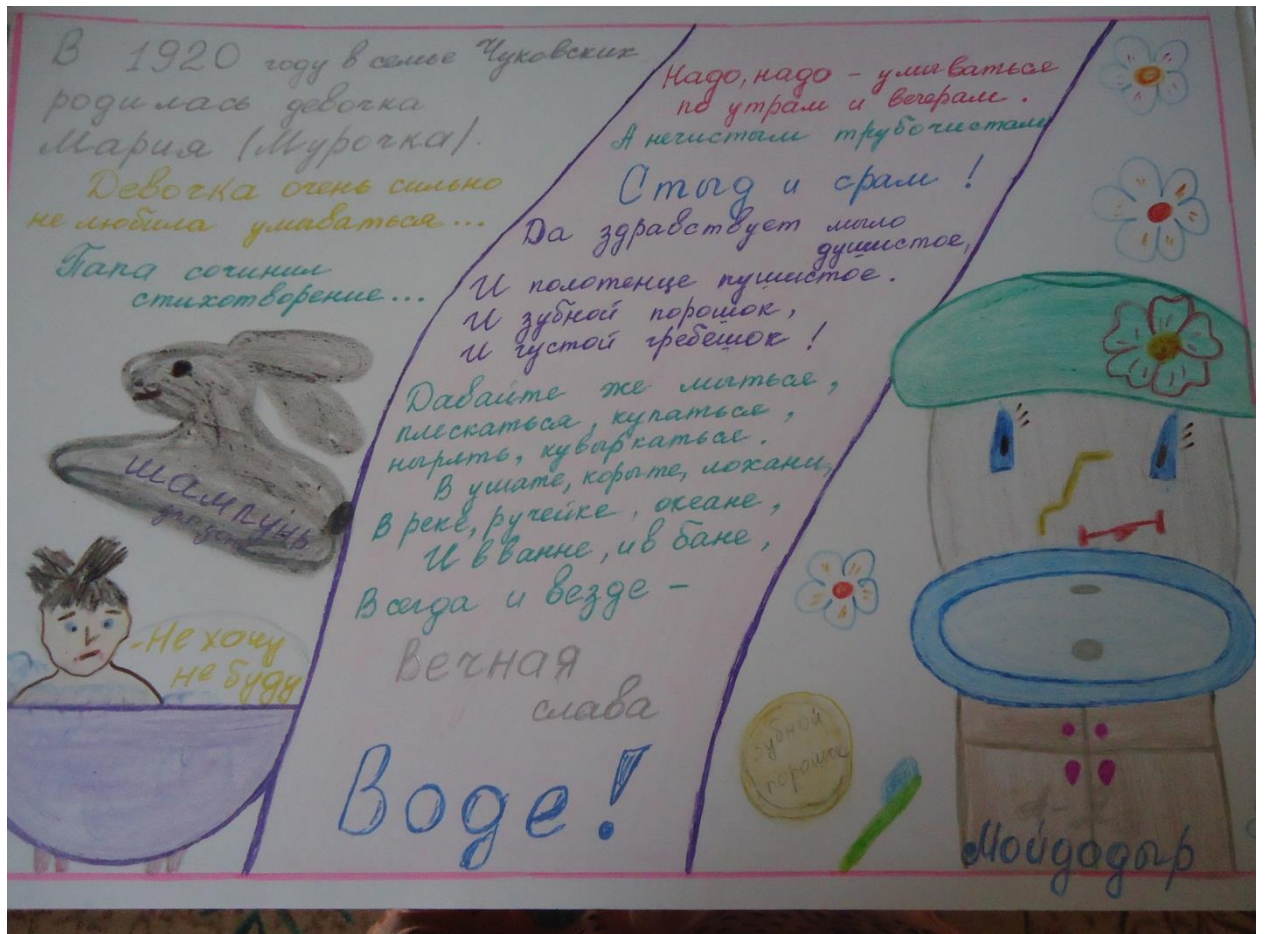 В 1920 году в семье Чуковских
родилась девочка
Мария (Мурочка).
Девочка очень сильно
не любила умываться...
Папа сочинил
стихотворение...
шампунь
-Не хочу
не буду
Надо, надо - умываться
по утрам и вечерам.
А нечистым трубочистам
Стыд и срам!
Да здравствует мыло
душистое,
И полотенце пушистое.
И зубной порошок,
И густой гребешок!
Давайте же мыться,
плескаться, купаться,
нырять, кувыркаться.
В ушате, корыте, лохани,
В реке, ручейке, океане,
И в ванне, и в бане,
Всегда и везде -
Вечная
слава
Воде!
зубной
порошок
Мойдодыр